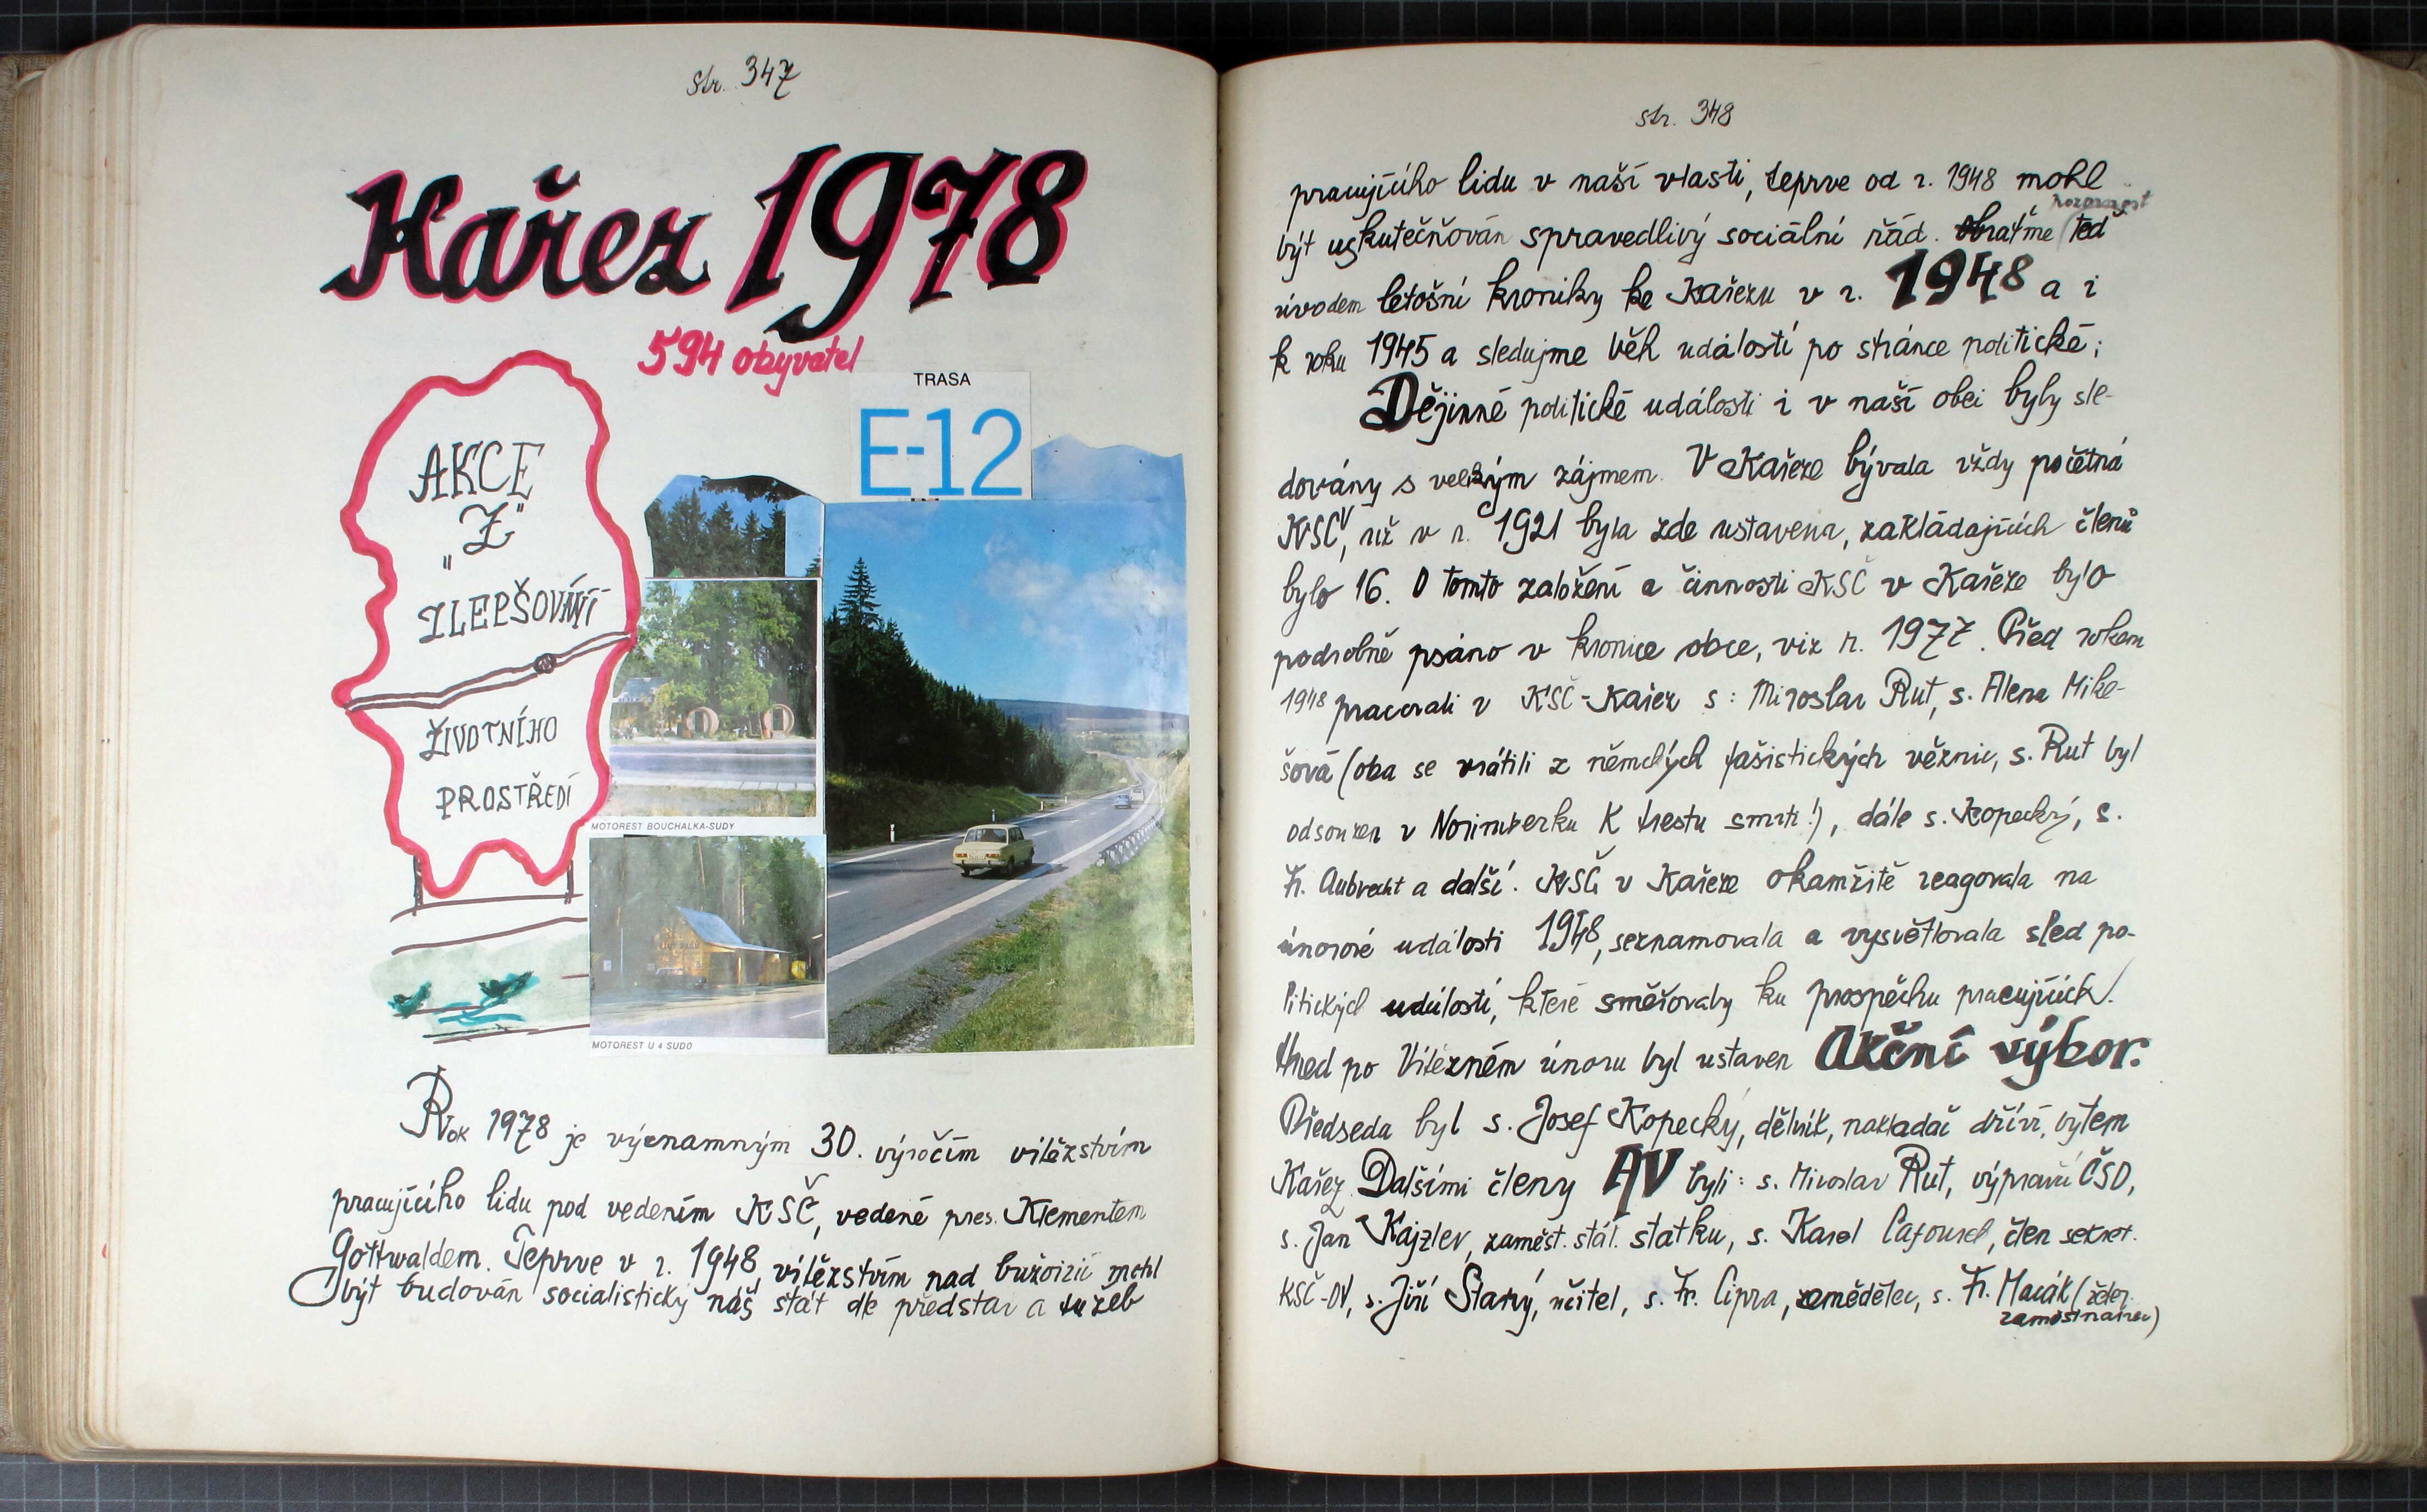 str. 347
Kařez 1978
594 obyvatel
TRASA
E-12
AKCE
„Z"
ZLEPŠOVÁNÍ
ŽIVOTNÍHO
PROSTŘEDÍ
MOTOREST BOUCHALKA-SUDY
MOTOREST U 4 SUDŮ
Rok 1978 je významným 30. výročím vítězstvím
pracujícího lidu pod vedením KSČ, vedené pres. Klementem
Gottwaldem. Teprve v r. 1948 vítězstvím nad buržoizií mohl
být budován socialistický náš stát dle představ a tužeb
str. 348
pracujícího lidu v naší vlasti, teprve od r. 1948 mohl
být uskutečňován spravedlivý sociální řád. Obraťme teď
úvodem letošní kroniky ke Kařezu v r. 1948 a i
k roku 1945 a sledujme běh událostí po stránce politické;
Dějinné politické události i v naší obci byly sle-
dovány s velkým zájmem. V Kařeze bývala vždy početná
KSČ, již v r. 1921 byla zde ustavena, zakládajících členů
bylo 16. O tomto založení a činnosti KSČ v Kařeze bylo
podrobně psáno v kronice obce, viz r. 1977. Před rokem
1948 pracovali v KSČ-Kařez s: Miroslav Rut, s. Alena Mike-
šová (oba se vrátili z německých fašistických věznic, s. Rut byl
odsouzen v Norimberku K trestu smrti!), dále s. Kopecký, s.
Fr. Aubrecht a další. KSČ v Kařeze okamžitě reagovala na
únorové události 1948, seznamovala a vysvětlovala sled po-
litických událostí, které směřovaly ku prospěchu pracujících.
Hned po Vítězném únoru byl ustaven Akční výbor.
Předseda byl s. Josef Kopecký, dělník, nakladač dříví, bytem
Kařez. Dalšími členy AV byli: s. Miroslav Rut, výpravčí ČSD,
s. Jan Kajzler, zaměst. stát. statku, s. Karel Cafourek, člen sekret.
KSČ-OV, s. Jiří Šťastný, učitel, s. Fr. Cipra, zemědělec, s. Fr. Macák (želez.
zaměstnanec)